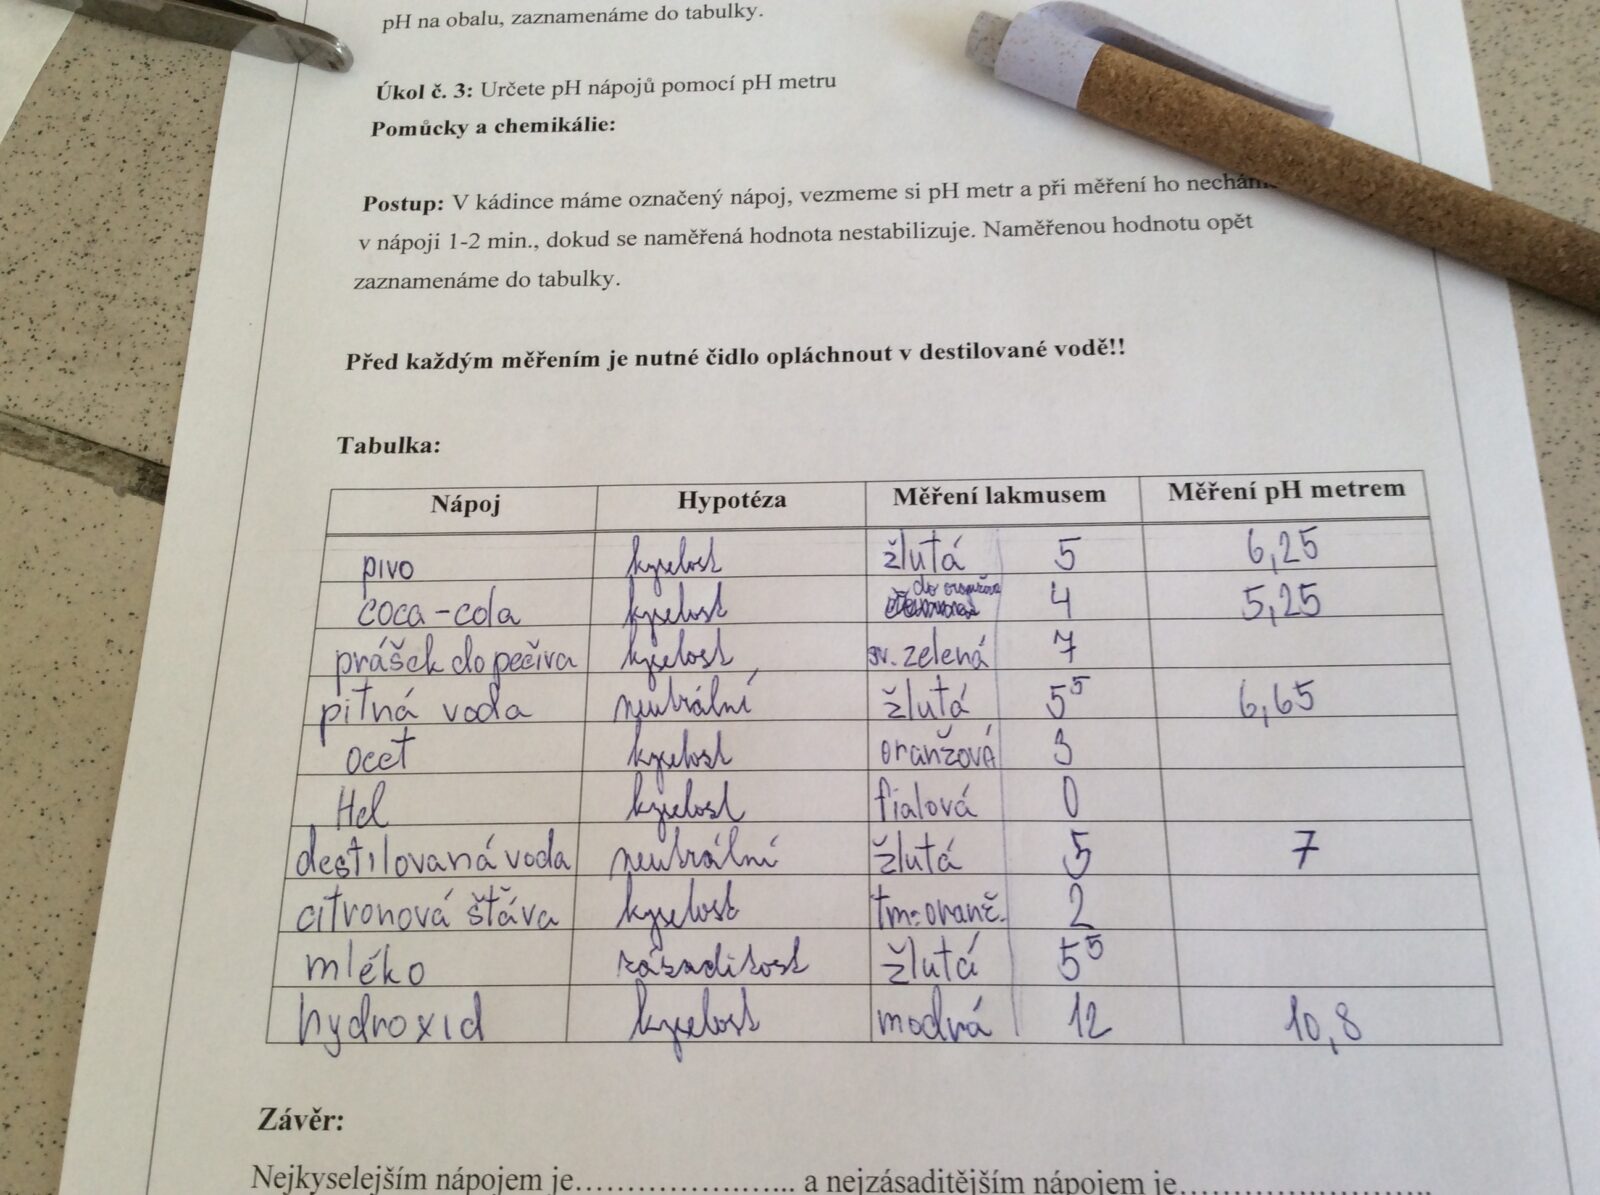 pH na obalu, zaznamenáme do tabulky.
Úkol č. 3: Určete pH nápojů pomocí pH metru
Pomůcky a chemikálie:
Postup: V kádince máme označený nápoj, vezmeme si pH metr a při měření ho
v nápoji 1-2 min., dokud se naměřená hodnota nestabilizuje. Naměřenou hodnotu opět
zaznamenáme do tabulky.
Před každým měřením je nutné čidlo opláchnout v destilované vodě!!
Tabulka:
Nápoj Hypotéza Měření lakmusem Měření pH metrem
pivo kyselost žlutá 5 6,25
coca-cola kyselost do oranžova 4 5,25
prášek do pečiva kyselost sv. zelená 7
pitná voda neutrální žlutá 5⁵ 6,65
ocet kyselost oranžová 3
Hcl kyselost fialová 0
destilovaná voda neutrální žlutá 5 7
citronová šťáva kyselost tm. oranč. 2
mléko zásaditost žlutá 5⁵
hydroxid kyselost modrá 12 10,8
Závěr:
Nejkyselejším nápojem je…………………... a nejzásaditějším nápojem je……………………..